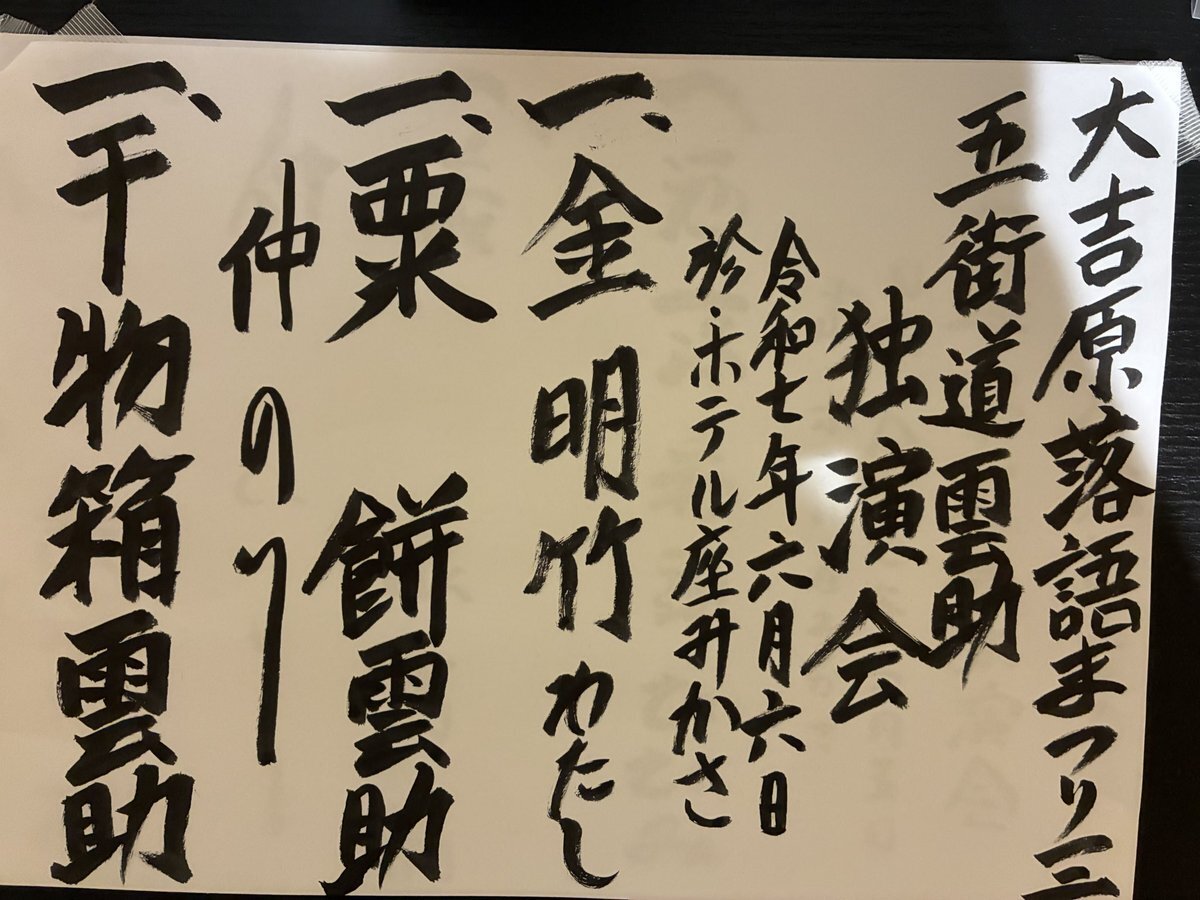 大吉原落語まつり三
五街道雲助
独演会
令和七年六月六日
於・ホテル座みかさ
一、金明竹 わたし
一、粟餅 雲助
仲のり
一、干物箱 雲助